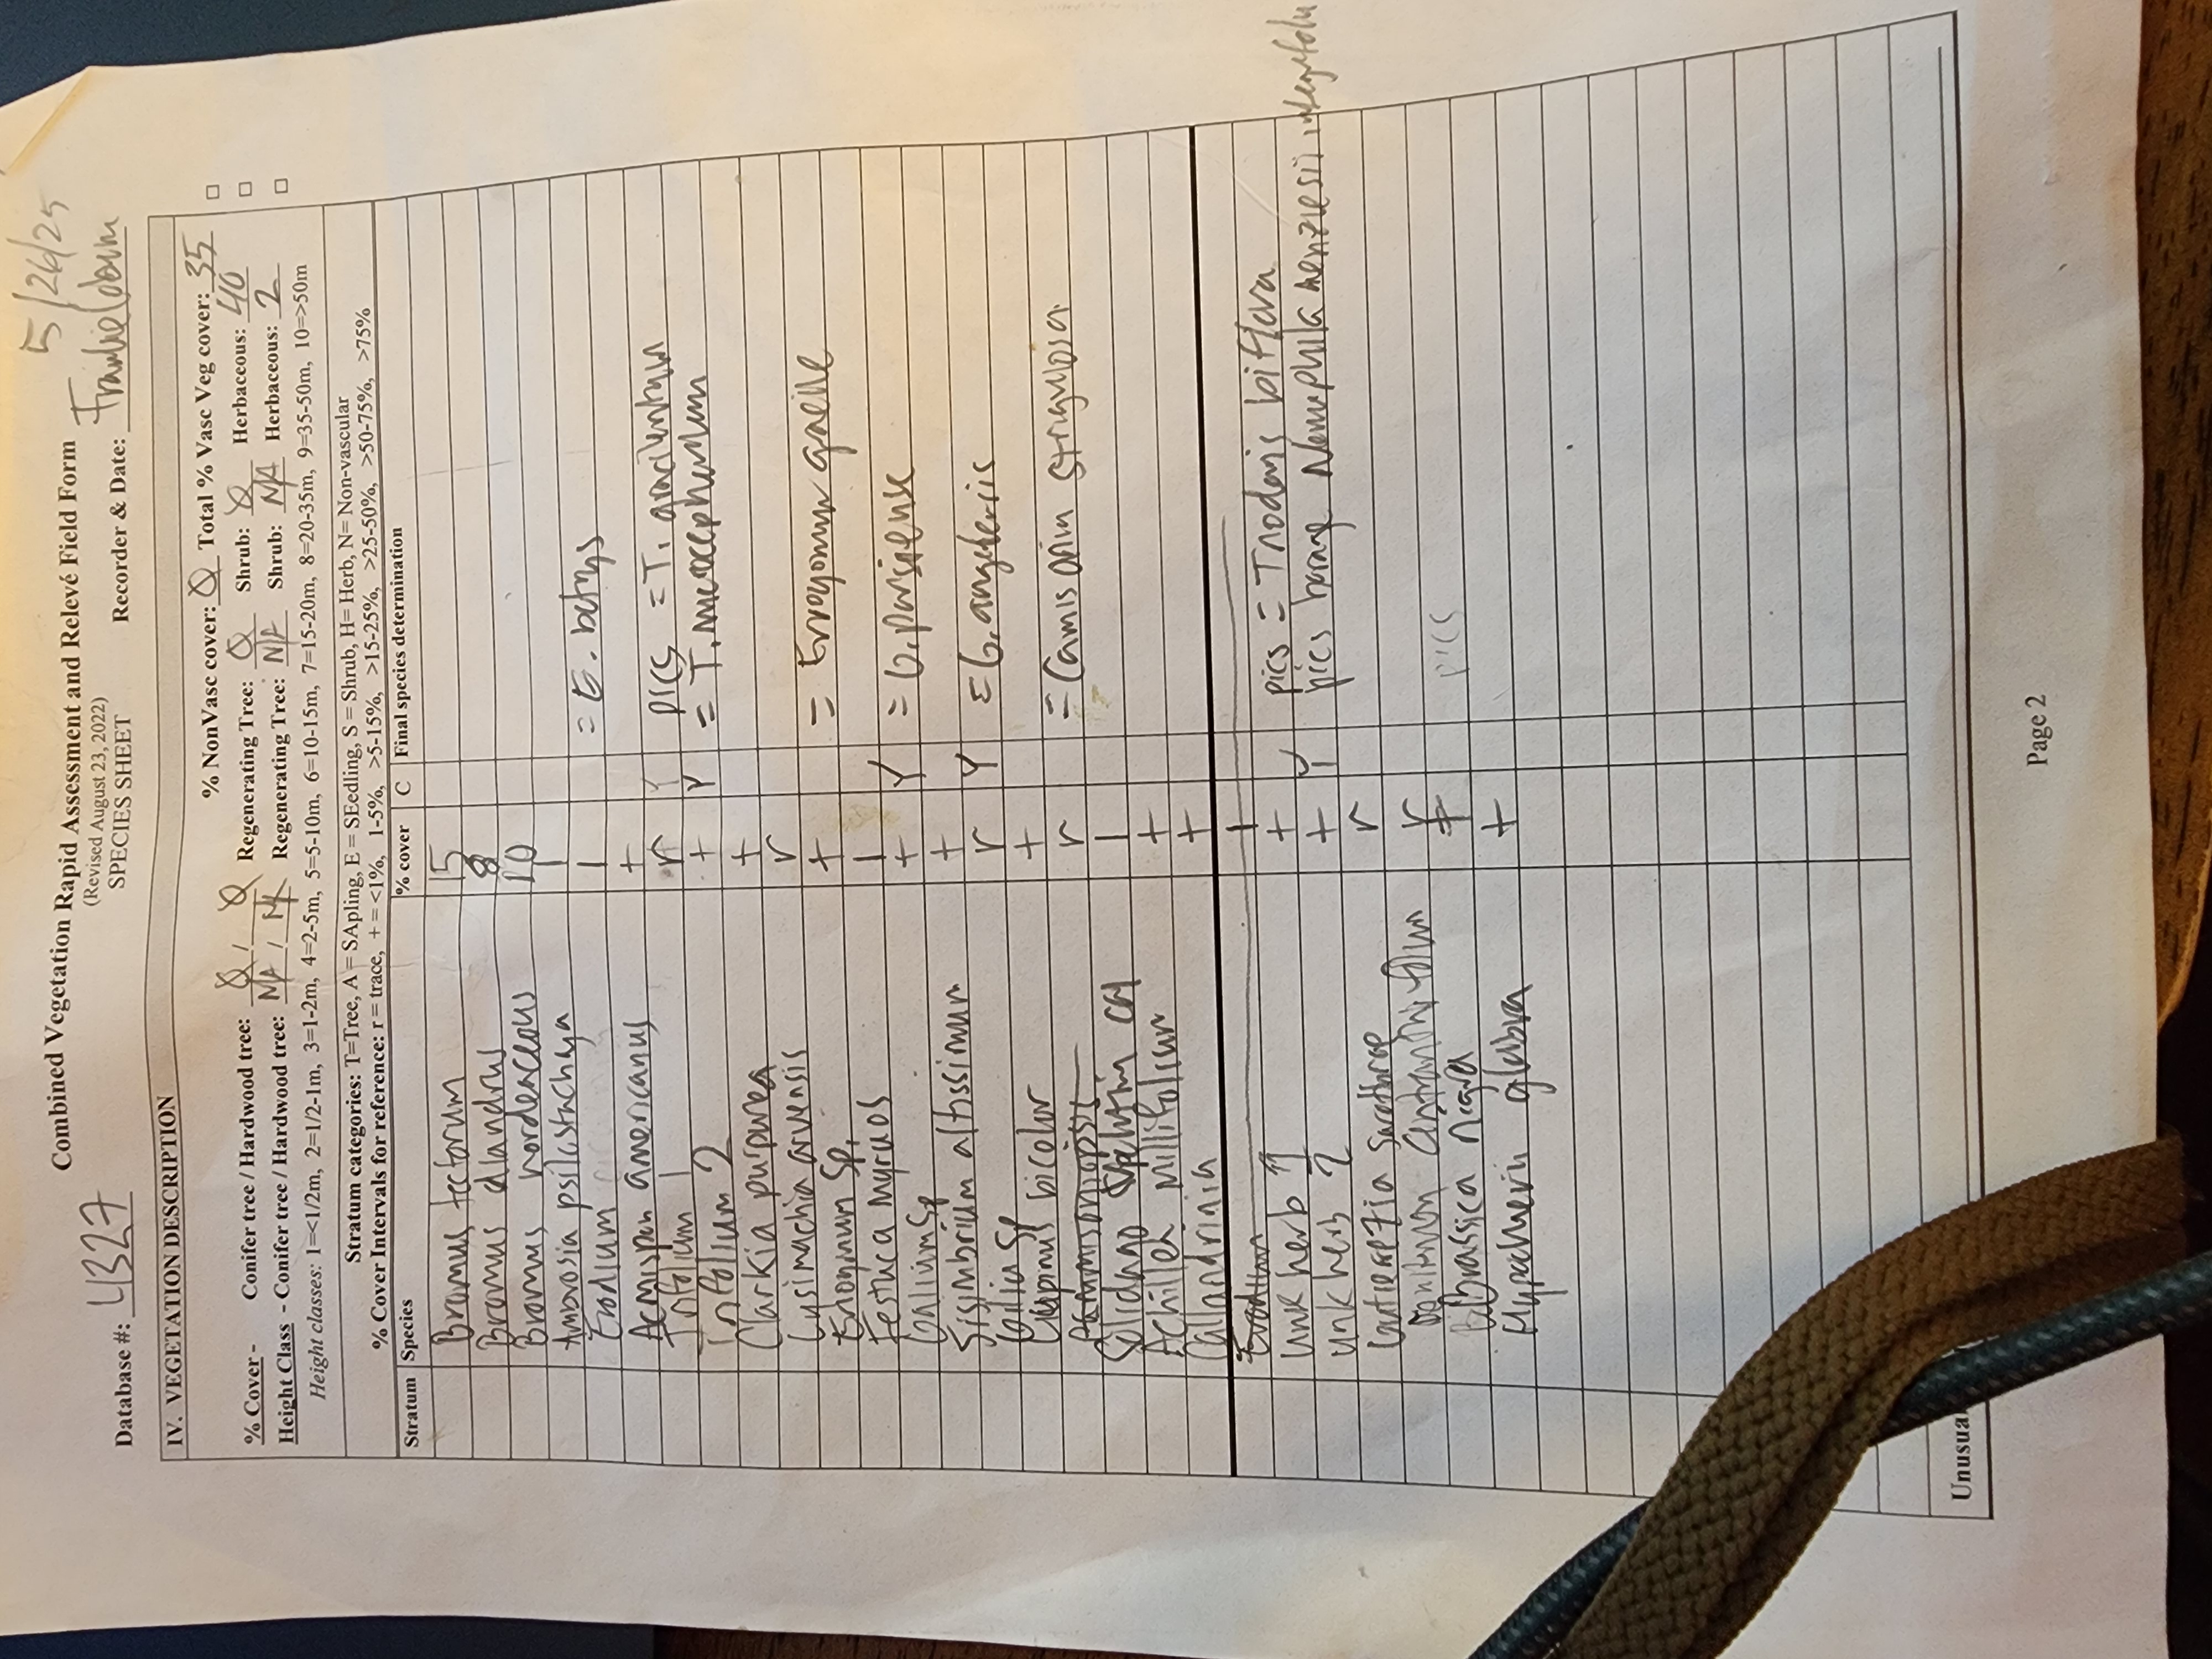 5/26/25
Combined Vegetation Rapid Assessment and Relevé Field Form
(Revised August 23, 2022)
Database #: 4327 SPECIES SHEET Recorder & Date:
IV. VEGETATION DESCRIPTION
% NonVasc cover: 0 Total % Vasc Veg cover: 35 □
% Cover - Conifer tree / Hardwood tree: 0 / 0 Regenerating Tree: 0 Shrub: 0 Herbaceous: 40 □
Height Class - Conifer tree / Hardwood tree: NA / NA Regenerating Tree: NA Shrub: NA Herbaceous: 2 □
Height classes: 1=<1/2m, 2=1/2-1m, 3=1-2m, 4=2-5m, 5=5-10m, 6=10-15m, 7=15-20m, 8=20-35m, 9=35-50m, 10=>50m
Stratum categories: T=Tree, A = SApling, E = SEedling, S = Shrub, H= Herb, N= Non-vascular
% Cover Intervals for reference: r = trace, + = <1%, 1-5%, >5-15%, >15-25%, >25-50%, >50-75%, >75%
Stratum Species % cover C Final species determination
Bromus tectorum 15
Bromus diandrus 8
Bromus hordeaceous 10
Ambrosia psilostachya 1
Erodium 1 = E. botrys
Acmispon americanus +
Trifolium 1 r Y pics = T. gracilentum
Trifolium 2 + Y = T. microcephalum
Clarkia purpurea +
Lysimachia arvensis r
Eriogonum sp. + = Eriogonum gracile
Festuca myuros 1
Galium sp + Y = G. parisiense
Sisimbrium altissimum +
Gilia sp r Y = G. angelensis
Lupinus bicolor +
r = Camissonia strigulosa
Solidago 1
Achillea millifolium +
Calandrinia +
Erodium +
Unk herb 1 + pics = biflora
unk herb 2 + Y pics borage Nemophila menziesii integrifolia
Gutierrezia sarothrae r
r
Brassica nigra + pics
Hypocheris glabra +
Unusual
Page 2